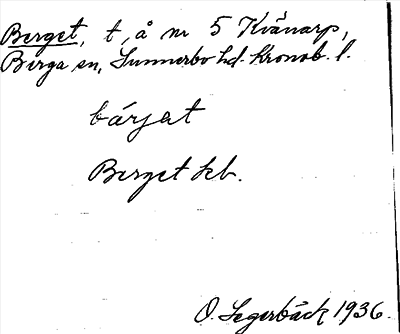 Berget, t, å nr 5 Kvänarp,
Berga sn, Sunnerbo hd. Kronob. l.
bárjat
Berget hb.
O. Segerbäck 1936.